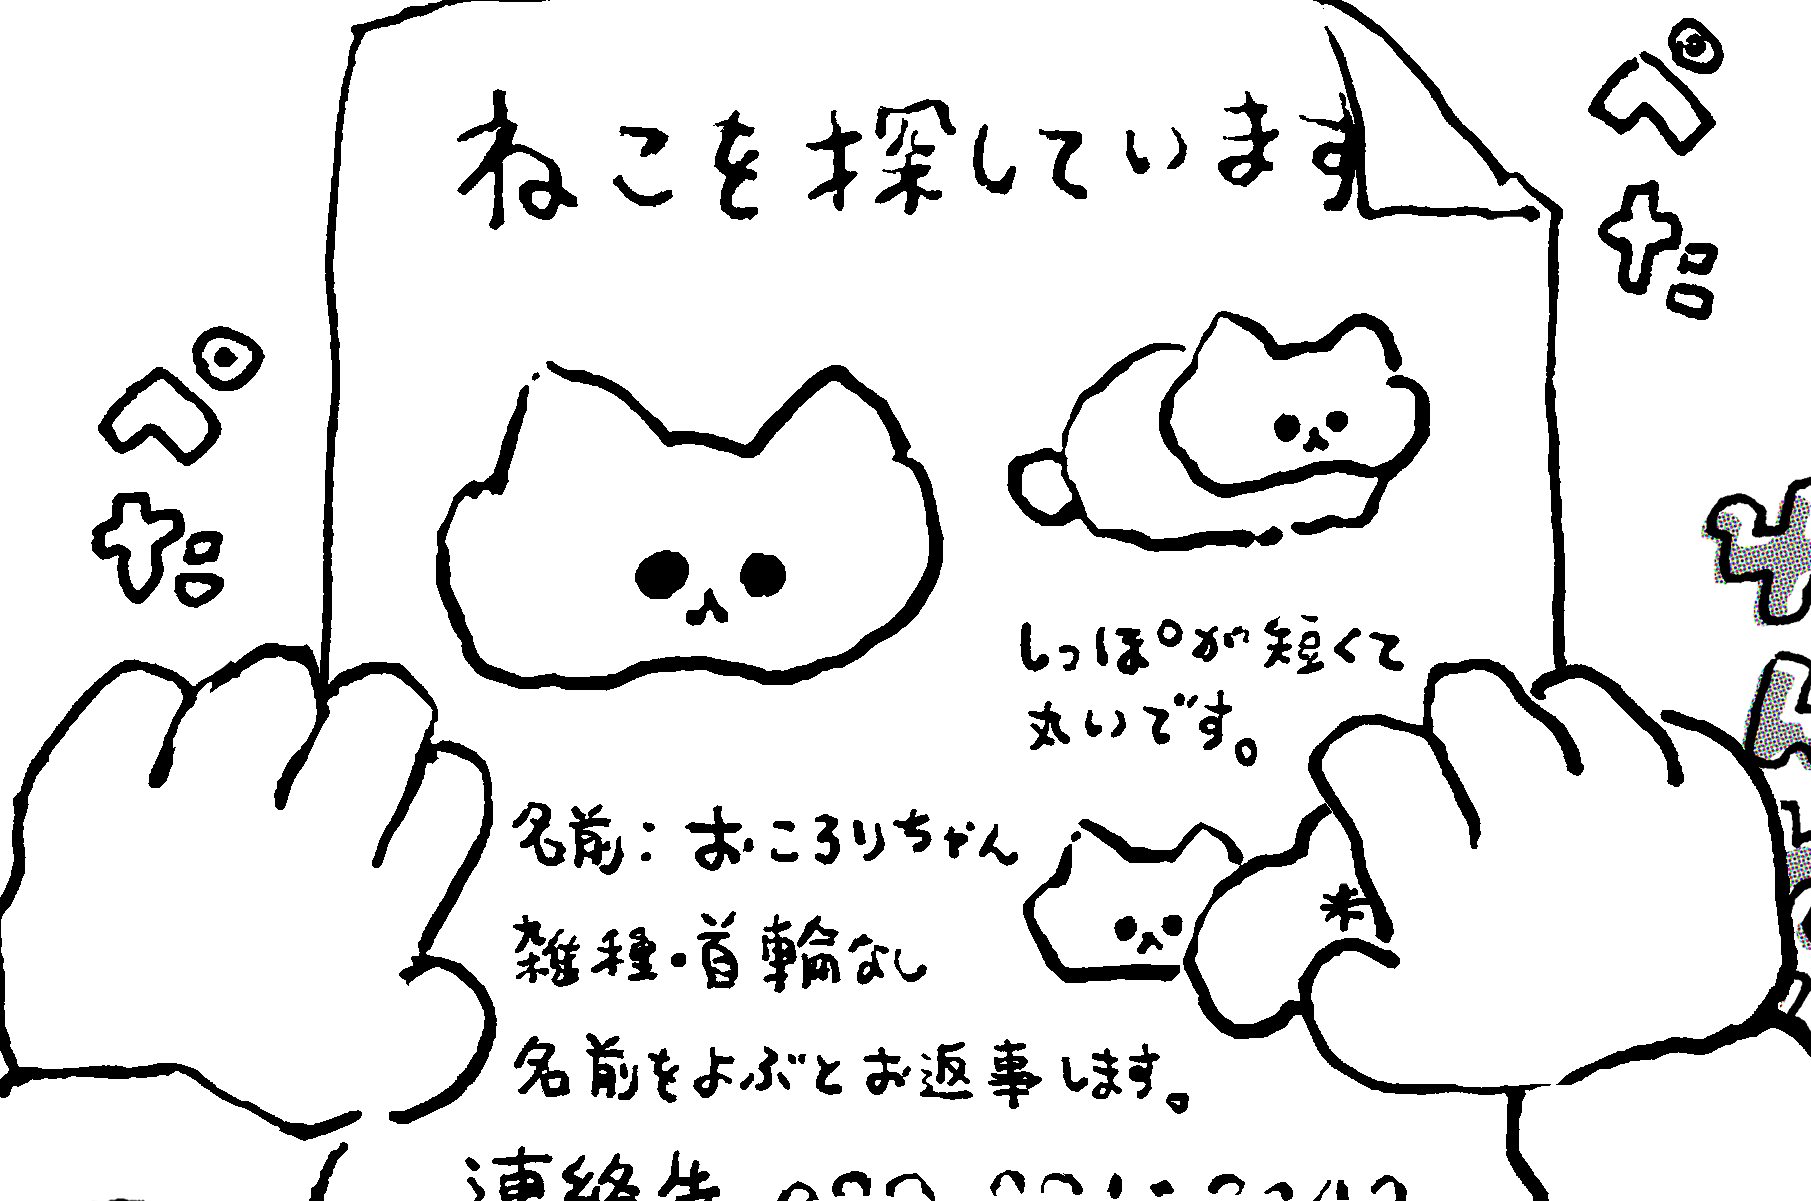 ねこを探しています
ペ
た
ペ
た
しっぽが短くて
丸いです。
名前：おころりちゃん
雑種・首輪なし
名前をよぶとお返事します。
連絡先